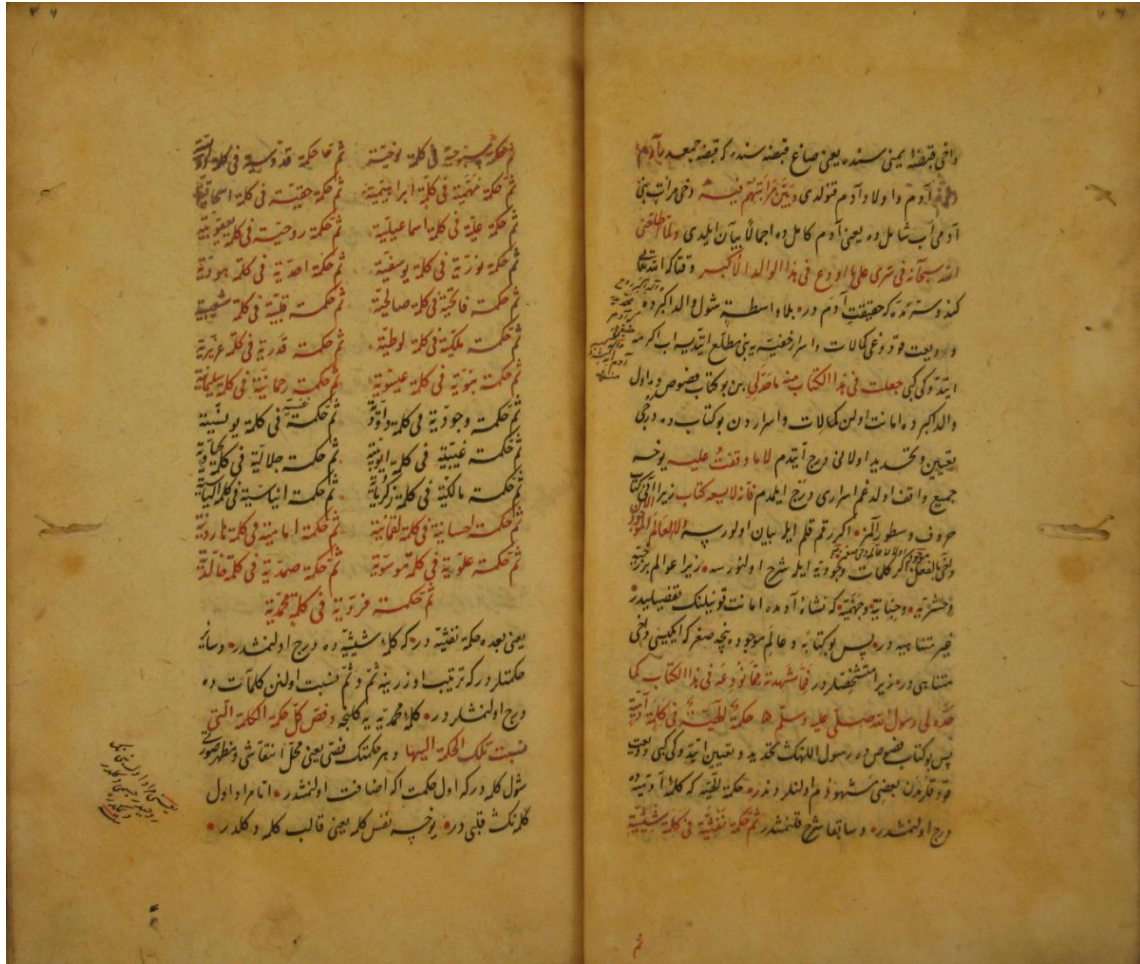 داخی قبضهٔ یمنی سنده یعنی صاغ قبضه سنده که قبضهٔ جمعدر یا آدم
آدم و اولاد آدم قنولدی وبیّن مراتبهم فیه دخی مراتب بنی
آدمی آب شامل ده یعنی آدم کامل ده اجمالاً بیان ایلدی ولما اطلعنی
الله سبحانه فی سرّی علی ما اودع فی هذا الوالد الأکبر وقتاکه الله تعالی
کندو سرّمده که حقیقت آدم در بلا واسطه شول والد اکبر ده
ودیعت قودوغی کمالات و اسرار خفیه یه بنی مطلع ایتدی
ایتدوکی کبی جعلت فی هذا الکتاب منه ما حدّ لی بن بو کتاب فصوص ده اول
والد اکبر ده امانت اولن کمالات و اسراردن بو کتاب ده درجی
تعیین و تحدید اولانی درج ایتدم لا ما وقفت علیه یوخسه
جمیع واقف اولدغم اسراری درج ایلمدم فانه لا یسعه کتاب زیرا انی کتاب
حروف و سطور المز اکر رقم قلم ایله بیان اولورسه ولا العالم الموجود الآن
داخی بالفعل اکر کلمات وجودیه ایله شرح اولنورسه زیرا عوالم برزخیه
وحشریه وجنانیه وجهنمیه که نشأة آدمده امانت قونیلنک تفصیلیدر
غیر متناهیه در پس بو کتابه و عالم موجوده نیجه صغر که ایکیسی داخی
متناهی در زیرا متشخصلردر فمما شهدته مما نودعه فی هذا الکتاب کما
حدّه لی رسول الله صلی علیه وسلم حکمة الهیة فی کلمة آدمیة
پس بو کتاب فصوص ده رسول اللهک تحدید و تعیین ایتدوکی کبی ودیعت
قودقلرمدن بعضی مشهودم اولنلردندر حکمة الهیه که کلمهٔ آدمیه ده
درج اولنمشدر و سابقا شرح قلنمشدر ثم حکمة نفثیة فی کلمة شیثیة
ثم
ثم حکمة سبوحیة فی کلمة نوحیة ثم حکمة قدوسیة فی کلمة ادریسیة
ثم حکمة مهیمیة فی کلمة ابراهیمیة ثم حکمة حقیة فی کلمة اسحاقیة
ثم حکمة علیة فی کلمة اسماعیلیة ثم حکمة روحیة فی کلمة یعقوبیة
ثم حکمة نوریة فی کلمة یوسفیة ثم حکمة احدیة فی کلمة هودیة
ثم حکمة فاتحیة فی کلمة صالحیة ثم حکمة قلبیة فی کلمة شعیبیة
ثم حکمة ملکیة فی کلمة لوطیة ثم حکمة قدریة فی کلمة عزیریة
ثم حکمة نبویة فی کلمة عیسویة ثم حکمة رحمانیة فی کلمة سلیمانیة
ثم حکمة وجودیة فی کلمة داودیة ثم حکمة نفسیة فی کلمة یونسیة
ثم حکمة غیبیة فی کلمة ایوبیة ثم حکمة جلالیة فی کلمة یحیاویة
ثم حکمة مالکیة فی کلمة زکریاویة ثم حکمة ایناسیة فی کلمة الیاسیة
ثم حکمة احسانیة فی کلمة لقمانیة ثم حکمة امامیة فی کلمة هارونیة
ثم حکمة علویة فی کلمة موسویة ثم حکمة صمدیة فی کلمة خالدیة
ثم حکمة فردیة فی کلمة محمدیة
یعنی بعده حکمة نفثیة در که کلمهٔ شیثیه ده درج اولنمشدر وسائر
حکمتلردر که ترتیب اوزرینه ثم و ثم نسبت اولنن کلمات ده
درج اولنمشلردر کلمهٔ محمدیه یه کلنجه وفص کل حکمة الکلمة التی
نسبت تلک الحکمة الیها و هر حکمتک فصی یعنی محل انتقاشی و مظهر صورتی
شول کلمه درکه اول حکمت اکا اضافت اولنمشدر اتا مراد اول
کلمه نک قلبی در یوخسه نفس کلمه یعنی قالب کلمه دکلدر